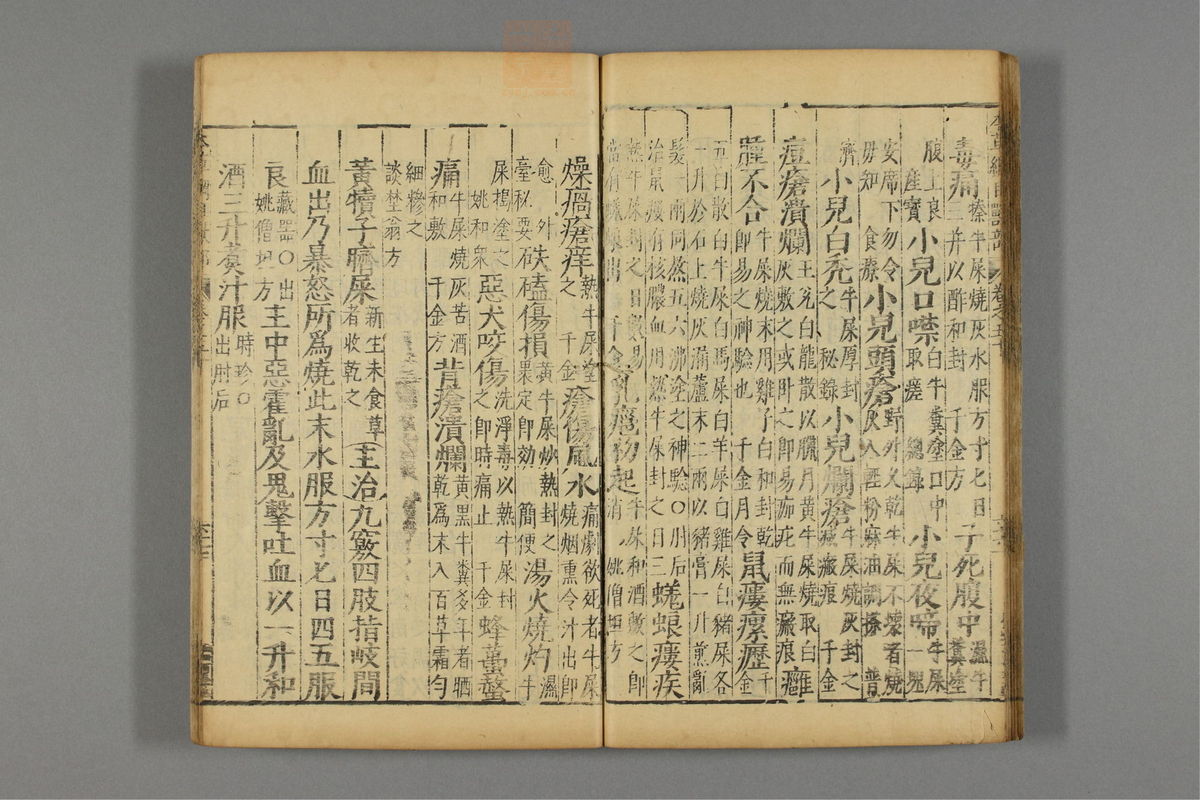 毒痛秦牛屎燒灰水服方寸七日三并以酢和封 千金方 子死腹中濕牛糞塗
腹上良產寶 小兒口噤白牛糞塗口中取瘥 總錄 小兒夜啼牛屎一塊
安席下勿令母知 食療 小兒頭瘡野外久乾牛屎不壞者燒灰入輕粉麻油調搽 普
濟 小兒白禿牛屎厚封之 秘錄 小兒爛瘡牛屎燒灰封之滅瘢痕 千金
痘瘡潰爛王兊白龍散以臘月黄牛屎燒取白灰敷之或卧之即易痂疕而無瘢痕 癰
腫不合牛屎燒末用雞子白和封乾即易之神驗也 千金月令 鼠瘻瘰癧千金
五白散白牛屎白馬屎白羊屎白雞屎白豬屎各一升於石上燒灰漏蘆末二兩以豬膏一升煎亂
髮一兩同熬五六沸塗之神驗○肘后治鼠瘻有核膿血用熱牛屎封之日三 蜣蜋瘻疾
熱牛屎封之日數易當有蜣蜋出 千金 乳癰初起牛屎和酒敷之即消 姚僧坦方
燥瘑瘡痒熱牛屎塗之 千金 瘡傷風水痛劇欲死者牛屎燒烟熏令汁出即
愈 外臺秘要 硤磕傷損黃牛屎炒熱封之裹定即効 簡便 湯火燒灼濕牛
屎搗塗之 姚和衆 惡犬咬傷洗淨毒以熱牛屎封之即時痛止 千金 蜂蠆螫
痛牛屎燒灰苦酒和敷 千金方 背瘡潰爛黃黑牛糞多年者晒乾爲末入百草霜勻
細糝之 談埜翁方
黃犢子臍屎新生未食草者收乾之 主治九竅四肢指岐間
血出乃暴怒所爲燒此末水服方寸七日四五服
良藏器○出姚僧坦方 主中惡霍亂及鬼擊吐血以一升和
酒三升煮汁服時珍○出肘后